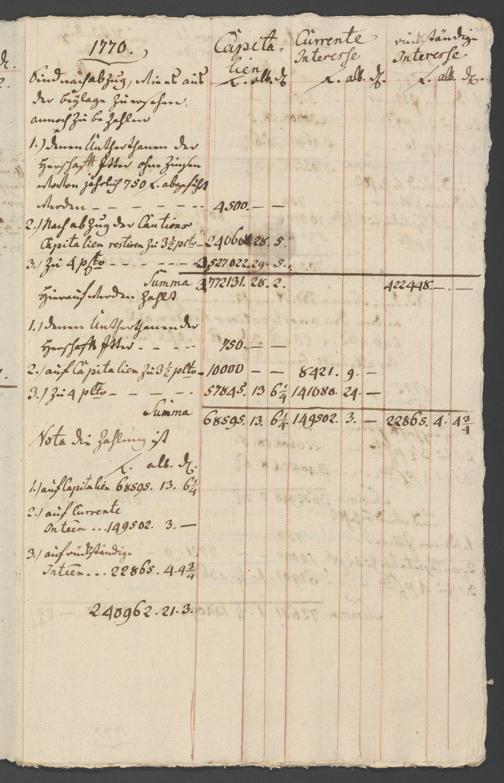 1770.
Capita-
lien
Currente
Interesse
rückständige
Interesse
f. alb. d.
f. alb. d.
f. alb. d.
Sind nach abzug, wie es aus
der beylage zu ersehen
annoch zu bezahlen
1.) denen Unterthanen der
Herschafft Itter ohne Zinsen
wovon jährlich 750 f. abgeführt
werden - - - - - 4500. — —
2.) Nach abzug der Cautions
Capitalien restiren zu 3½ pcto 28. 5.
3.) zu 4 pcto - - - - 3,527022. 29. 5.
Summa 3,772131. 28. 2. 422448. — . —
Hierauf werden Zahlt
1.) denen Unterthanen der
Herschafft Itter - - - - 750. — —
2.) auf Capitalien zu 3½ pcto 10000 — — 8421. 9. —
3.) zu 4 pcto - - - - 57845. 13 6¼ 141080 24 —
Summa 68595. 13. 6¼ 149502. 3. — 22865. 4. 4¾
Nota die Zahlung ist
f. alb. d.
1.) auf Capitalien 68595. 13. 6¼
2.) auf Currente
Inteen ... 149502. 3. —
3.) auf rückständige
Inteen ... 22865. 4. 4¾
240962. 21. 3.